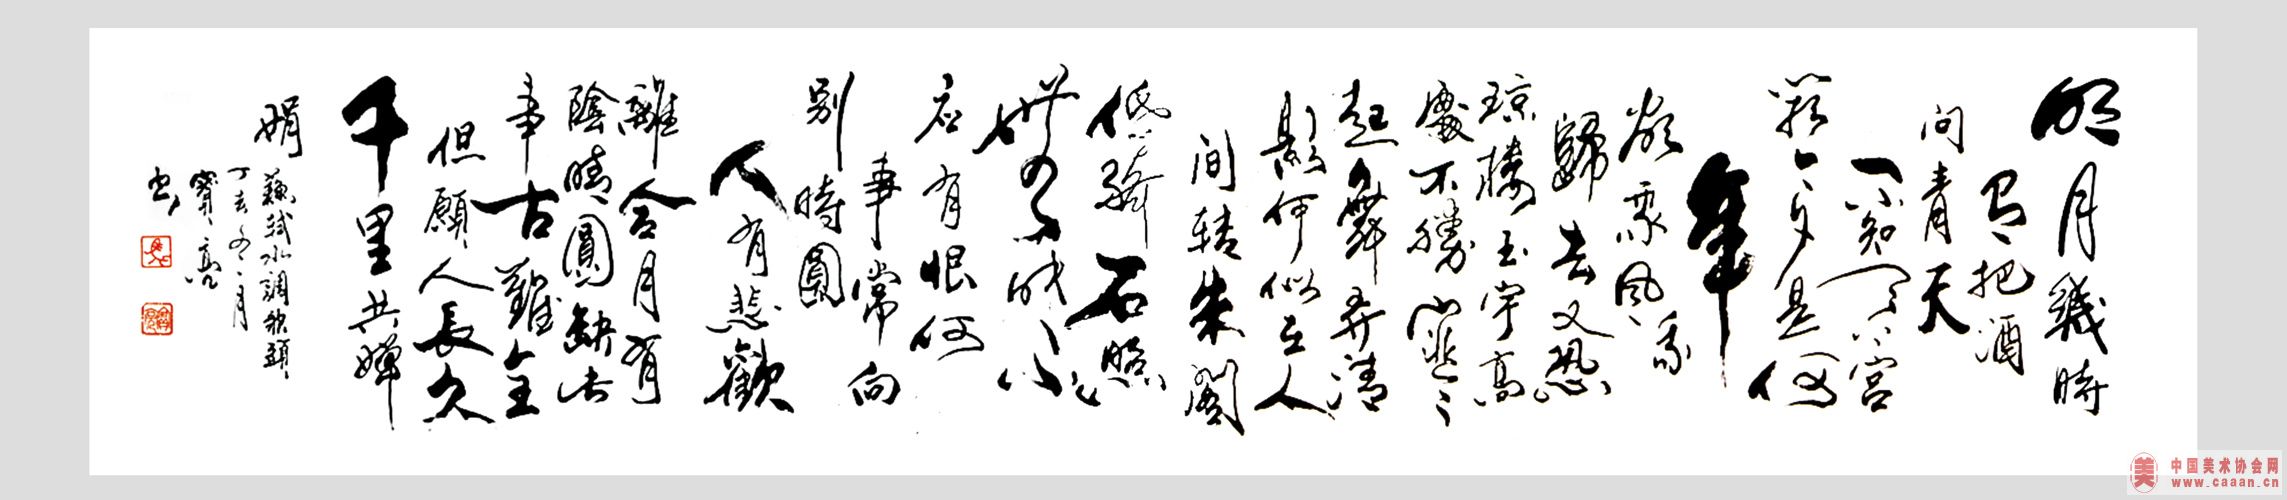 明月幾時
有把酒
问青天
不知天上宫
闕今夕是何
年
欲乘风我
歸去又恐
琼樓玉宇高
處不勝寒
起舞弄清
影何似在人
间转朱阁
低绮户照
無眠不
应有恨何
事常向
别時圓
人有悲歡
離合月有
陰晴圓缺此
事古難全
但願人長久
千里共嬋
娟
蘇軾水調歌頭
丁亥冬月
寶亮
书
美 中国美术协会网
www.caaan.cn